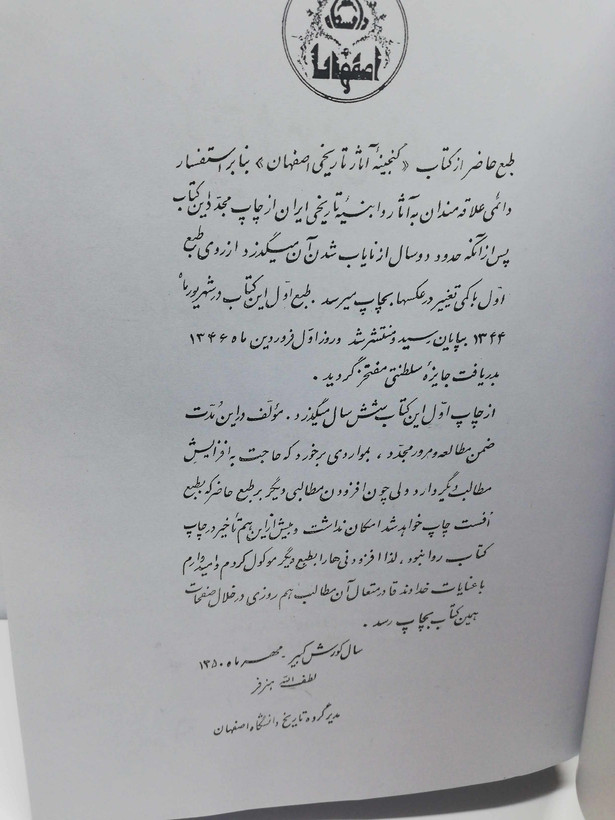 دانشگاه
اصفهان
طبع حاضر از کتاب «گنجینهٔ آثار تاریخی اصفهان» بنا بر استفسار
دائمی علاقه‌مندان به آثار و ابنیهٔ تاریخی ایران از چاپ مجدد این کتاب
پس از آنکه حدود دو سال از نایاب شدن آن میگذرد از روی طبع
اوّل با کمی تغییر در عکسها بچاپ میرسد. طبع اوّل این کتاب در شهریور ماه
۱۳۴۴ بپایان رسید و منتشر شد و روز اوّل فروردین ماه ۱۳۴۶
بدریافت جایزهٔ سلطنتی مفتخر گردید.
از چاپ اوّل این کتاب شش سال میگذرد. مؤلف در این مدّت
ضمن مطالعه و مرور مجدّد، بمواردی برخورد که حاجت به افزایش
مطالب دیگر دارد ولی چون افزودن مطالبی دیگر بر طبع حاضر که بطبع
افست چاپ خواهد شد امکان نداشت و بیش از این هم تأخیر در چاپ
کتاب روا نبود، لذا افزودنی‌ها را بطبع دیگر موکول کردم و امیدوارم
با عنایات خداوند قادر متعال آن مطالب هم روزی در خلال صفحات
همین کتاب بچاپ رسد.
سال کورش کبیر - مهر ماه ۱۳۵۰
لطف الله هنرفر
مدیر گروه تاریخ دانشگاه اصفهان